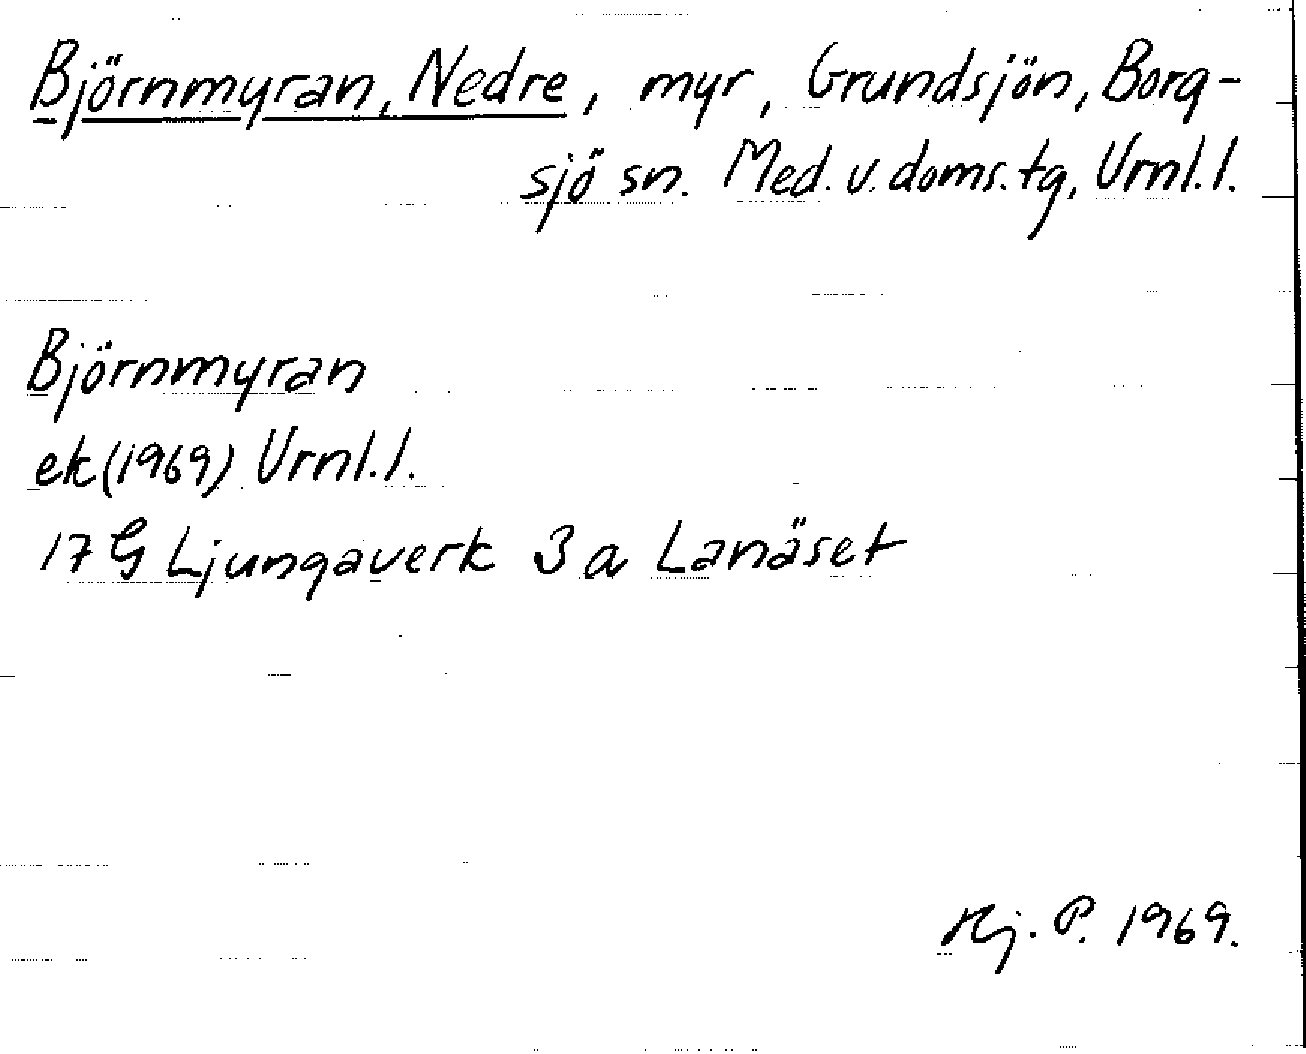 Björnmyran, Nedre, myr, Grundsjön, Borg-
sjö sn. Med. v. doms. tg, Vrnl. l.
Björnmyran
ek (1969) Vrnl. l.
17 G Ljungaverk 3 a Lanäset
Hj. P. 1969.